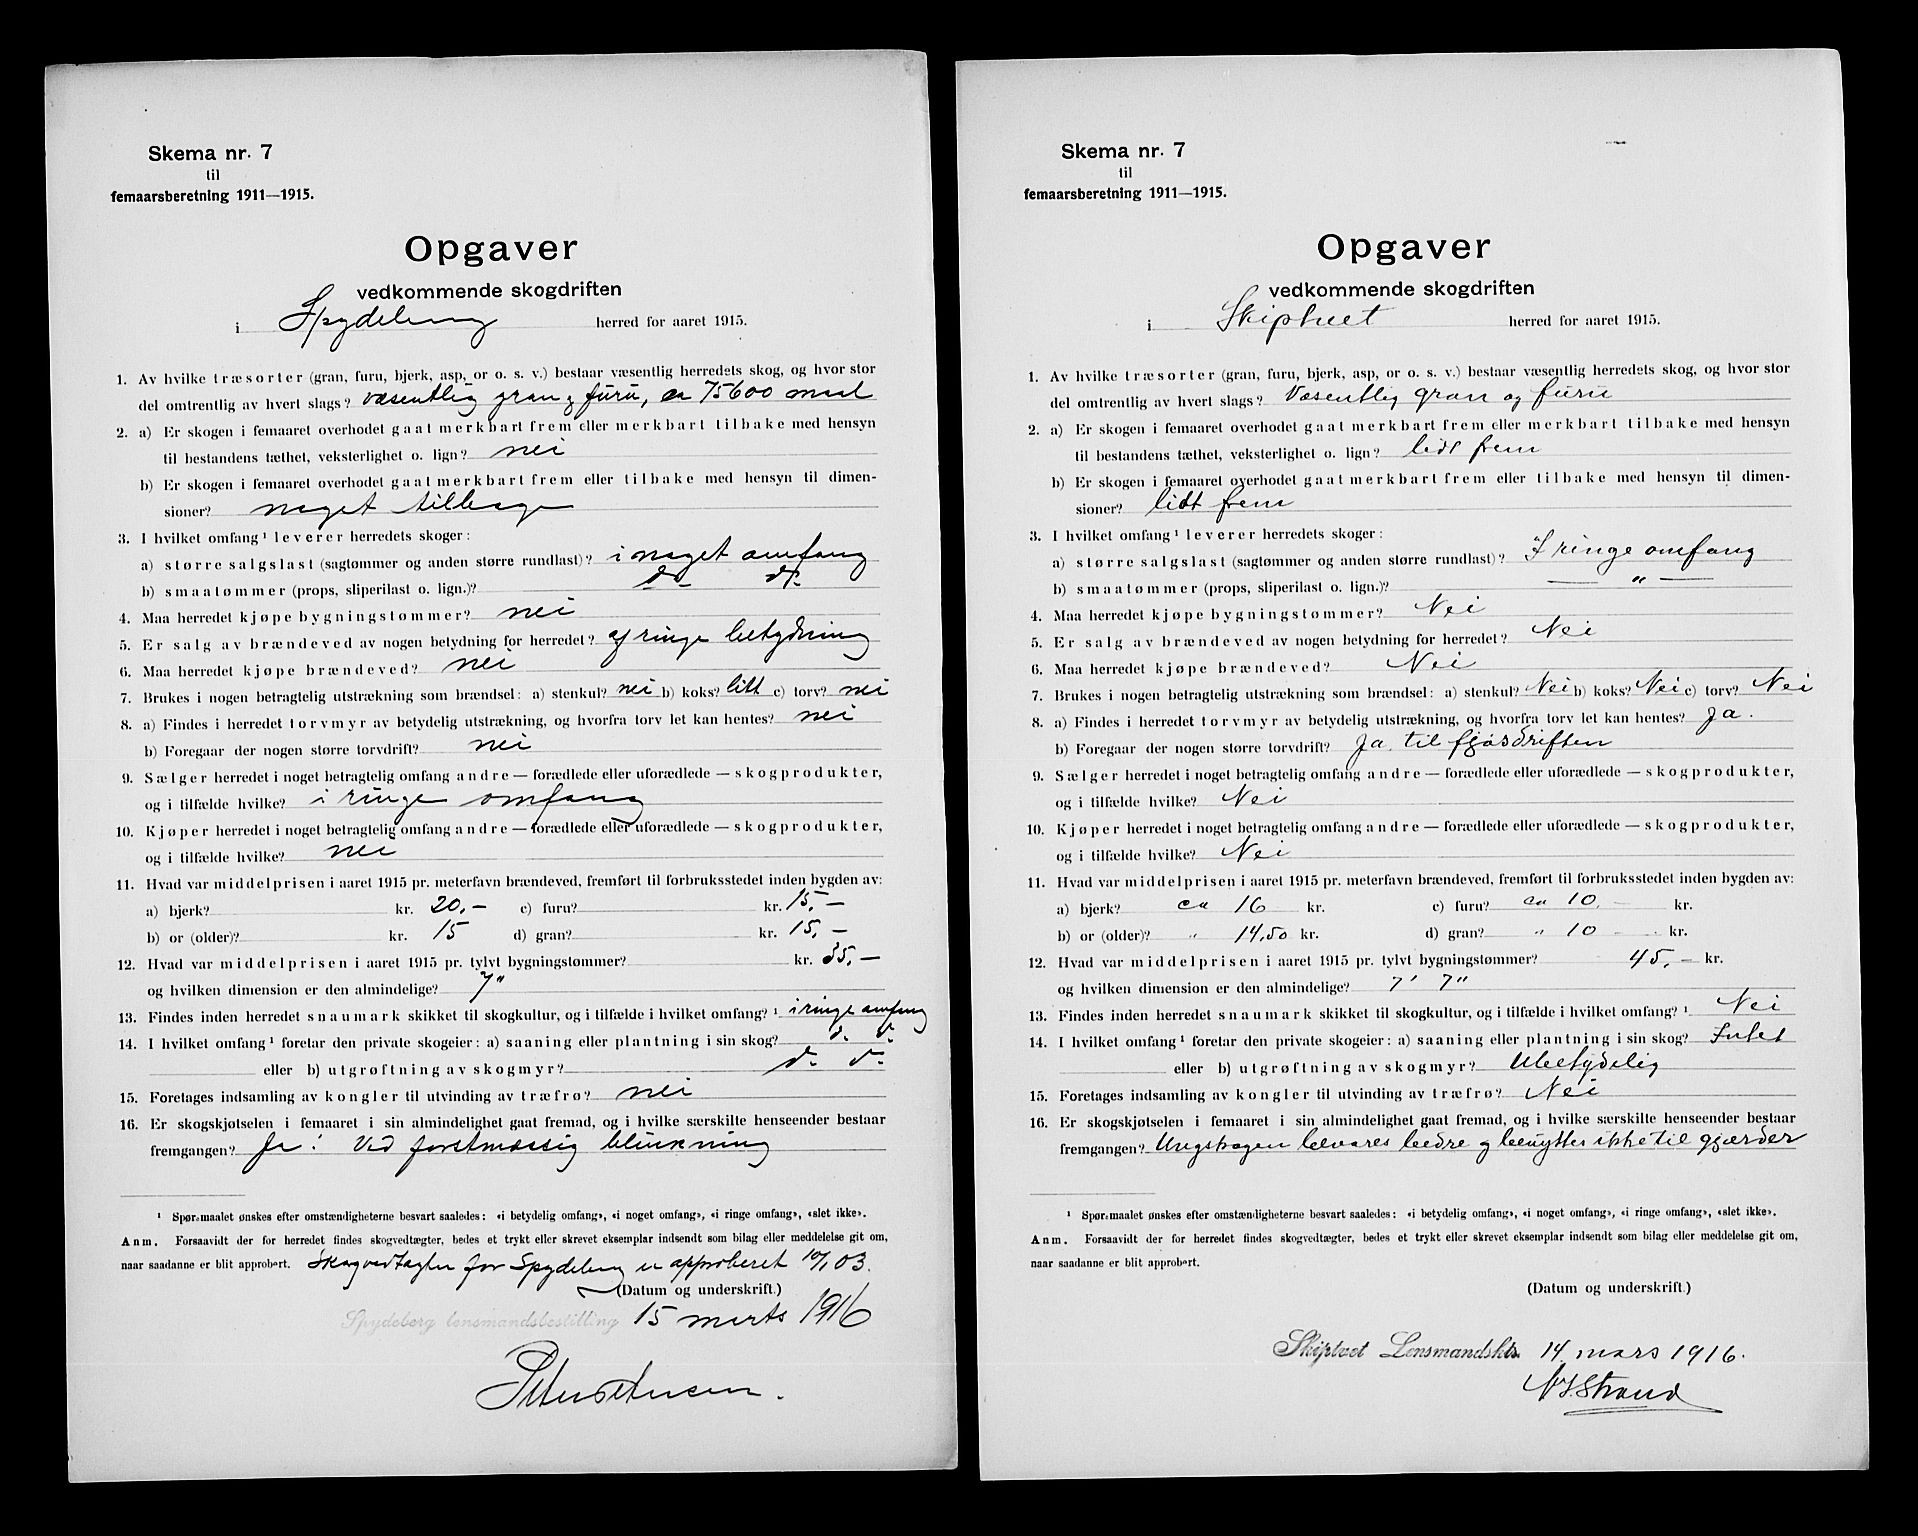 Skema nr. 7
til
femaarsberetning 1911—1915.
Opgaver
vedkommende skogdriften
i Spydeberg herred for aaret 1915.
1. Av hvilke træsorter (gran, furu, bjerk, asp, or o. s. v.) bestaar væsentlig herredets skog, og hvor stor
del omtrentlig av hvert slags? væsentlig gran og furu, ca 75600 maal
2. a) Er skogen i femaaret overhodet gaat merkbart frem eller merkbart tilbake med hensyn
til bestandens tæthet, veksterlighet o. lign? nei
b) Er skogen i femaaret overhodet gaat merkbart frem eller tilbake med hensyn til dimen-
sioner? noget tilbage
3. I hvilket omfang¹ leverer herredets skoger:
a) større salgslast (sagtømmer og anden større rundlast)? i noget omfang
b) smaatømmer (props, sliperilast o. lign.)? do do
4. Maa herredet kjøpe bygningstømmer? nei
5. Er salg av brændeved av nogen betydning for herredet? af ringe betydning
6. Maa herredet kjøpe brændeved? nei
7. Brukes i nogen betragtelig utstrækning som brændsel: a) stenkul? nei b) koks? litt c) torv? nei
8. a) Findes i herredet torvmyr av betydelig utstrækning, og hvorfra torv let kan hentes? nei
b) Foregaar der nogen større torvdrift? nei
9. Sælger herredet i noget betragtelig omfang andre — forædlede eller uforædlede — skogprodukter,
og i tilfælde hvilke? i ringe omfang
10. Kjøper herredet i noget betragtelig omfang andre — forædlede eller uforædlede — skogprodukter,
og i tilfælde hvilke? nei
11. Hvad var middelprisen i aaret 1915 pr. meterfavn brændeved, fremført til forbruksstedet inden bygden av:
a) bjerk? kr. 20,- c) furu? kr. 15,-
b) or (older)? kr. 15 d) gran? kr. 15,-
12. Hvad var middelprisen i aaret 1915 pr. tylvt bygningstømmer? kr. 35,-
og hvilken dimension er den almindelige? 7"
13. Findes inden herredet snaumark skikket til skogkultur, og i tilfælde i hvilket omfang?¹ i ringe omfang
14. I hvilket omfang¹ foretar den private skogeier: a) saaning eller plantning i sin skog? do do
eller b) utgrøftning av skogmyr? do do
15. Foretages indsamling av kongler til utvinding av træfrø? nei
16. Er skogskjøtselen i femaaret i sin almindelighet gaat fremad, og i hvilke særskilte henseender bestaar
fremgangen? Ja! Ved forstmæssig blinkning
¹ Spørsmaalet ønskes efter omstændigheterne besvart saaledes: «i betydelig omfang», «i noget omfang», «i ringe omfang», «slet ikke».
Anm. Forsaavidt der for herredet findes skogvedtægter, bedes et trykt eller skrevet eksemplar indsendt som bilag eller meddelelse git om,
naar saadanne er blit approbert. Skogvedtægter for Spydeberg er approberet 10/1 03.
(Datum og underskrift.)
Spydeberg lensmandsbestilling 15 marts 1916
Skema nr. 7
til
femaarsberetning 1911—1915.
Opgaver
vedkommende skogdriften
i Skiptvet herred for aaret 1915.
1. Av hvilke træsorter (gran, furu, bjerk, asp, or o. s. v.) bestaar væsentlig herredets skog, og hvor stor
del omtrentlig av hvert slags? Væsentlig gran og furu
2. a) Er skogen i femaaret overhodet gaat merkbart frem eller merkbart tilbake med hensyn
til bestandens tæthet, veksterlighet o. lign? lidt frem
b) Er skogen i femaaret overhodet gaat merkbart frem eller tilbake med hensyn til dimen-
sioner? lidt frem
3. I hvilket omfang¹ leverer herredets skoger:
a) større salgslast (sagtømmer og anden større rundlast)? I ringe omfang
b) smaatømmer (props, sliperilast o. lign.)? — " —
4. Maa herredet kjøpe bygningstømmer? Nei
5. Er salg av brændeved av nogen betydning for herredet? Nei
6. Maa herredet kjøpe brændeved? Nei
7. Brukes i nogen betragtelig utstrækning som brændsel: a) stenkul? Nei b) koks? Nei c) torv? Nei
8. a) Findes i herredet torvmyr av betydelig utstrækning, og hvorfra torv let kan hentes? Ja.
b) Foregaar der nogen større torvdrift? Ja til fjøsdriften
9. Sælger herredet i noget betragtelig omfang andre — forædlede eller uforædlede — skogprodukter,
og i tilfælde hvilke? Nei
10. Kjøper herredet i noget betragtelig omfang andre — forædlede eller uforædlede — skogprodukter,
og i tilfælde hvilke? Nei
11. Hvad var middelprisen i aaret 1915 pr. meterfavn brændeved, fremført til forbruksstedet inden bygden av:
a) bjerk? ca 16 kr. c) furu? ca 10.- kr.
b) or (older)? " 14,50 kr. d) gran? " 10 - kr.
12. Hvad var middelprisen i aaret 1915 pr. tylvt bygningstømmer? 45,- kr.
og hvilken dimension er den almindelige? 7' 7"
13. Findes inden herredet snaumark skikket til skogkultur, og i tilfælde i hvilket omfang?¹ Nei
14. I hvilket omfang¹ foretar den private skogeier: a) saaning eller plantning i sin skog? Intet
eller b) utgrøftning av skogmyr? Ubetydelig
15. Foretages indsamling av kongler til utvinding av træfrø? Nei
16. Er skogskjøtselen i femaaret i sin almindelighet gaat fremad, og i hvilke særskilte henseender bestaar
fremgangen? Ungskogen bevares bedre og benyttes ikke til gjærder
¹ Spørsmaalet ønskes efter omstændigheterne besvart saaledes: «i betydelig omfang», «i noget omfang», «i ringe omfang», «slet ikke».
Anm. Forsaavidt der for herredet findes skogvedtægter, bedes et trykt eller skrevet eksemplar indsendt som bilag eller meddelelse git om,
naar saadanne er blit approbert.
(Datum og underskrift.)
Skiptvet Lensmandskt. 14 mars 1916.
Strand